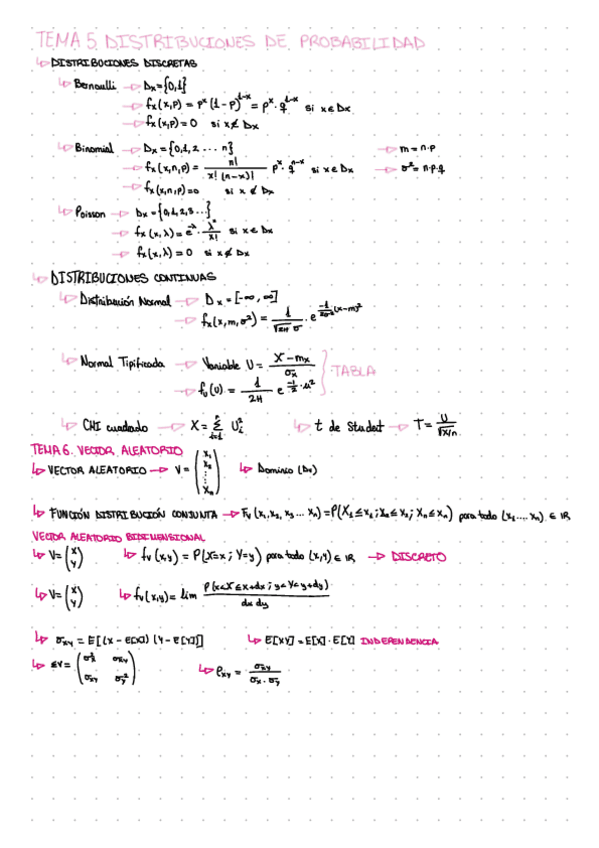 TEMA 5 DISTRIBUCIONES DE PROBABILIDAD
↳ DISTRIBUCIONES DISCRETAS
↳ Bernoulli → Dx={0,1}
→ fx(x,p) = p^x (1-p)^1-x = p^x · q^1-x si x∈Dx
→ fx(x,p) = 0 si x∉Dx
↳ Binomial → Dx={0,1,2 ... n} → m = n·p
→ fx(x,n,p) = n! / x!(n-x)! p^x · q^n-x si x∈Dx → σ² = n·p·q
→ fx(x,n,p)=0 si x∉Dx
↳ Poisson → Dx={0,1,2,3...}
→ fx(x,λ) = e^-λ · λ^x / x! si x∈Dx
→ fx(x,λ) = 0 si x∉Dx
↳ DISTRIBUCIONES CONTINUAS
↳ Distribución Normal → Dx = [-∞, ∞]
→ fx(x,m,σ²) = 1 / √2π σ · e^-1/2σ² (x-m)²
↳ Normal Tipificada → Variable U = X-mx / σx } TABLA
→ fu(u) = 1 / 2π e^-1/2 · u²
↳ CHI cuadrado → X = Σ i=1 n Ui² ↳ t de Student → T = U / √X/n
TEMA 6. VECTOR ALEATORIO
↳ VECTOR ALEATORIO → V = (x1 x2 ⋮ xn) ↳ Dominio (Dv)
↳ FUNCIÓN DISTRIBUCIÓN CONJUNTA → Fv(x1,x2,x3...xn) = P(X1≤x1; X2≤x2; Xn≤xn) para todo (x1,... xn) ∈ IR
VECTOR ALEATORIO BIDIMENSIONAL
↳ V = (X Y) ↳ fv(x,y) = P(X=x; Y=y) para todo (x,y) ∈ IR → DISCRETO
↳ V = (X Y) ↳ fv(x,y) = lim P(x<X≤x+dx; y<Y<y+dy) / dx dy
↳ σxy = E[(x-E[x])(Y-E[Y])] ↳ E[XY] = E[X]·E[Y] INDEPENDENCIA
↳ ΣV = (σx² σxy σxy σy²) ↳ ρxy = σxy / σx·σy